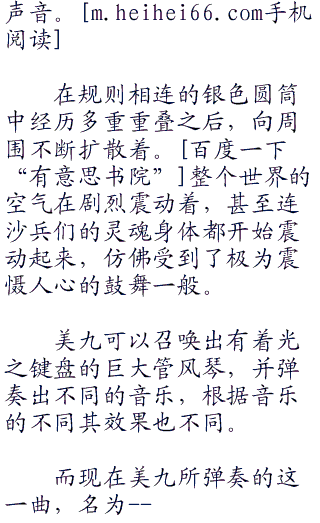 声音。[m.heihei66.com手机
阅读]
在规则相连的银色圆筒
中经历多重重叠之后，向周
围不断扩散着。[百度一下
“有意思书院”]整个世界的
空气在剧烈震动着，甚至连
沙兵们的灵魂身体都开始震
动起来，仿佛受到了极为震
慑人心的鼓舞一般。
美九可以召唤出有着光
之键盘的巨大管风琴，并弹
奏出不同的音乐，根据音乐
的不同其效果也不同。
而现在美九所弹奏的这
一曲，名为--